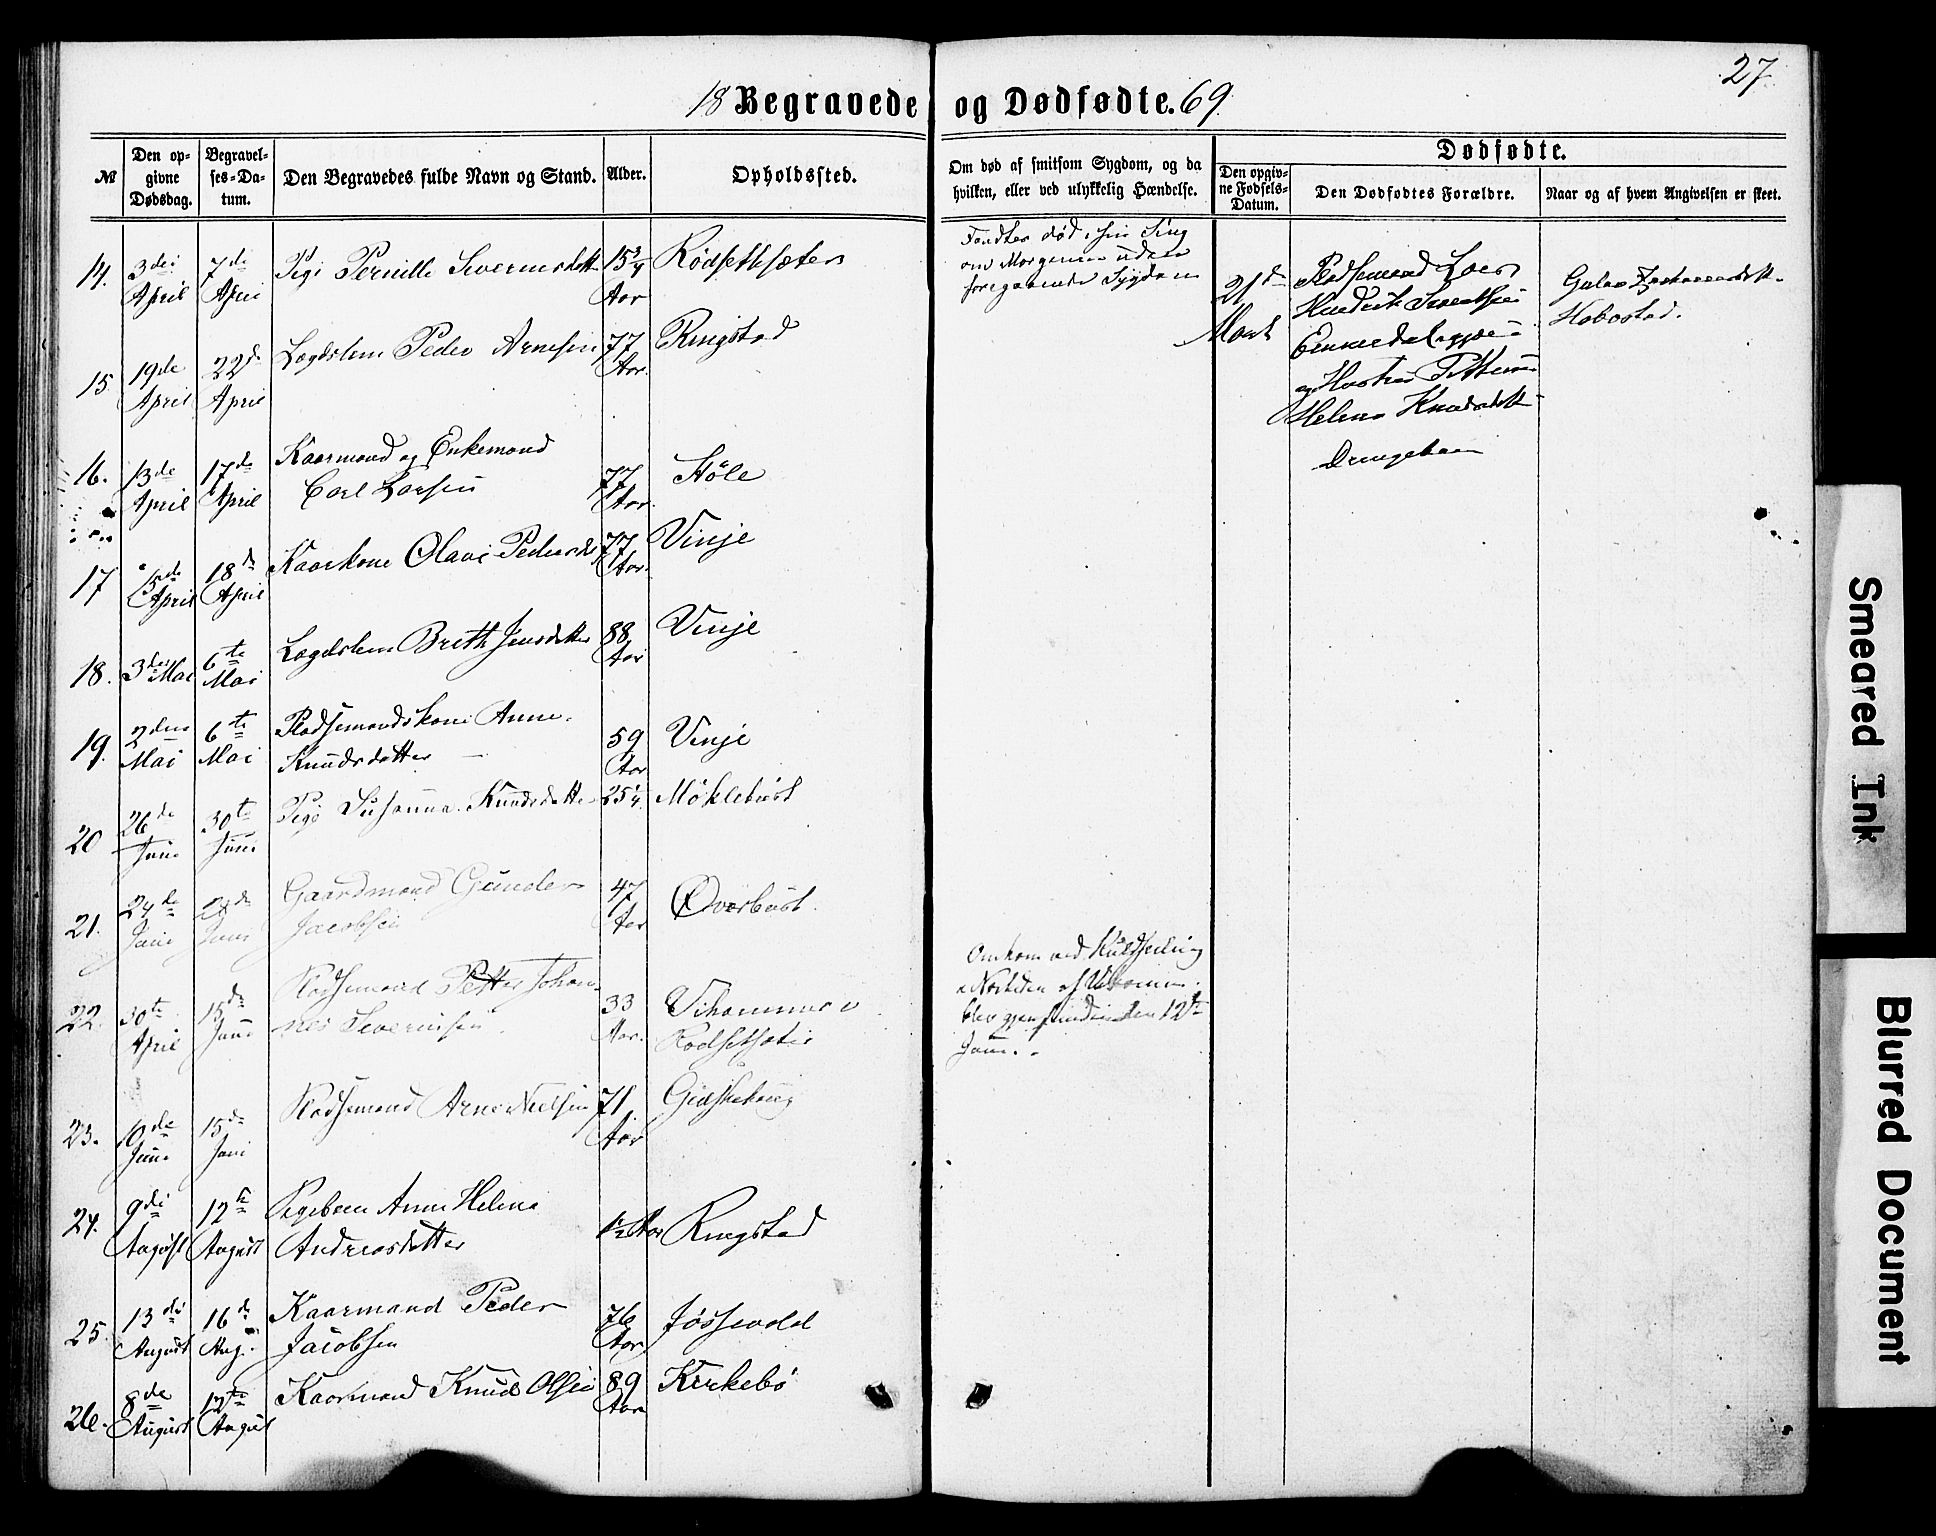 27.
18 Begravede og Dødfødte. 69.
№
Den opgivne Dødsdag.
Begravelses-Datum.
Den Begravedes fulde Navn og Stand.
Alder.
Opholdssted.
Om død af smitsom Sygdom, og da hvilken, eller ved ulykkelig Hændelse.
Dødfødte.
Den opgivne Fødsels-Datum.
Den Dødfødtes Forældre.
Naar og af hvem Angivelsen er skeet.
14. 3die April 7de April Pige Pernille Severinsdatter 15 3/4 Aar Rødsethsæter
Fandtes død i sin Seng
om Morgenen uden
foregaaende Sygdom
21de Marts
Pladsemand Lars
og Hustru
Helene Knudsdatt
Habostad.
15. 19de April 22de April Lægdslem Peder Arnesen 77 Aar Ringstad
16. 13de April 17de April Kaarmand og Enkemand
Carl Larsen 77 Aar Støle
17 15de April 18de April Kaarkone Olave Pedersdt 77 Aar Vinje
18. 3die Mai 6te Mai Lægdslem Brith Jensdatter 88 Aar Vinje
19. 2den Mai 6te Mai Pladsemandskone Anne
Knudsdatter 59 Aar Vinje
20 26de Juni 30te Juni Pige Susanna Knudsdatter 25 1/4 Møklebust
21. 24de Juni Juni Gaardmand Gunder
Jacobsen 47 Aar Øverbust.
22. 30te April 15de Juni Pladsemand Petter Johannes
Severinsen 33 Aar. Rødsetsæter
Omkom ved Kuldseiling
blev gjenfunden den 12te
Juni.
23. 10de Juni 15de Juni Pladsemand Arne Nielsen 71 Aar Gidskehaug
24. 9de August 12te August Pigebarn Anne Helene
Andreasdatter 1 1/2 Aar Ringstad
25. 13de August 16de Aug. Kaarmand Peder
Jacobsen 76 Aar Jøssevold
26. 8de August 12te August Kaarmand Knud Olsen 89 Aar Kirkebø
Smeared Ink
Blurred Document